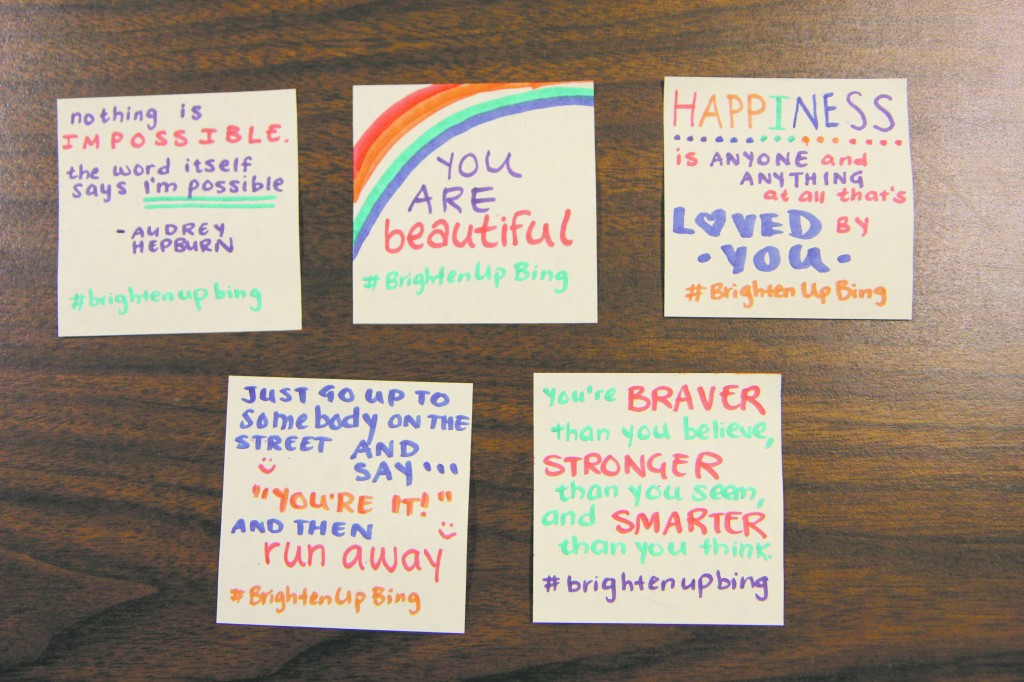 nothing is
IMPOSSIBLE.
the word itself
says I'm possible
- AUDREY
HEPBURN
#brightenupbing
YOU
ARE
beautiful
#BrightenUpBing
HAPPINESS
is ANYONE and
ANYTHING
at all that's
LOVED BY
·YOU·
#BrightenUpBing
JUST GO UP TO
somebody ON THE
STREET AND
SAY...
"YOU'RE IT!"
AND THEN
run away
#BrightenUpBing
you're BRAVER
than you believe,
STRONGER
than you seem,
and SMARTER
than you think.
#brightenupbing